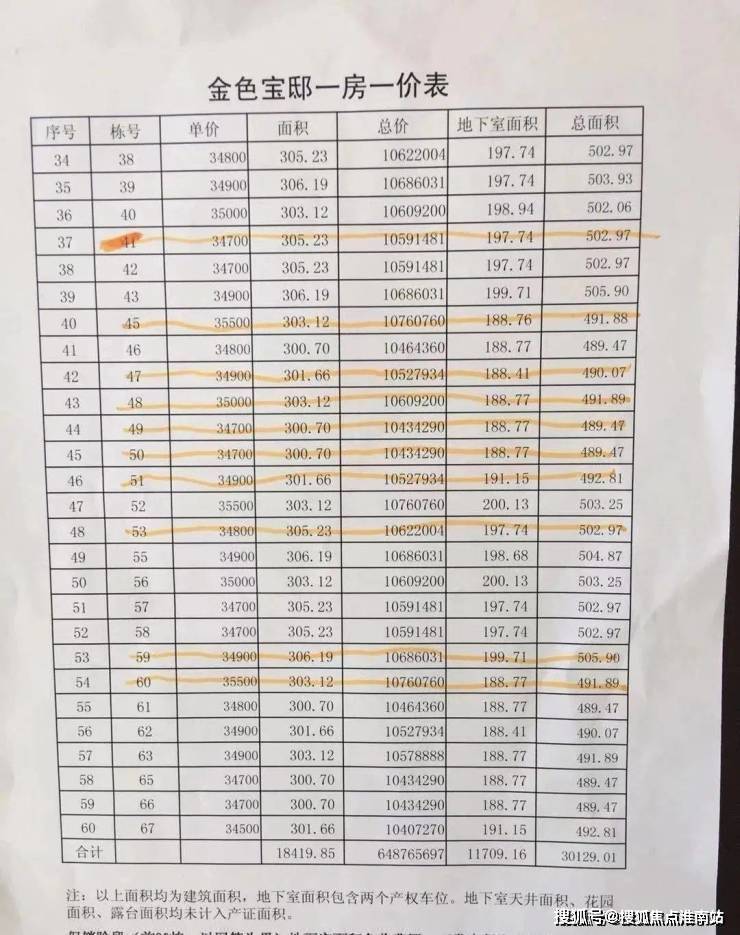 金色宝邸一房一价表
序号 栋号 单价 面积 总价 地下室面积 总面积
34 38 34800 305.23 10622004 197.74 502.97
35 39 34900 306.19 10686031 197.74 503.93
36 40 35000 303.12 10609200 198.94 502.06
37 41 34700 305.23 10591481 197.74 502.97
38 42 34700 305.23 10591481 197.74 502.97
39 43 34900 306.19 10686031 199.71 505.90
40 45 35500 303.12 10760760 188.76 491.88
41 46 34800 300.70 10464360 188.77 489.47
42 47 34900 301.66 10527934 188.41 490.07
43 48 35000 303.12 10609200 188.77 491.89
44 49 34700 300.70 10434290 188.77 489.47
45 50 34700 300.70 10434290 188.77 489.47
46 51 34900 301.66 10527934 191.15 492.81
47 52 35500 303.12 10760760 200.13 503.25
48 53 34800 305.23 10622004 197.74 502.97
49 55 34900 306.19 10686031 198.68 504.87
50 56 35000 303.12 10609200 200.13 503.25
51 57 34700 305.23 10591481 197.74 502.97
52 58 34700 305.23 10591481 197.74 502.97
53 59 34900 306.19 10686031 199.71 505.90
54 60 35500 303.12 10760760 188.77 491.89
55 61 34800 300.70 10464360 188.77 489.47
56 62 34900 301.66 10527934 188.41 490.07
57 63 34900 303.12 10578888 188.77 491.89
58 65 34700 300.70 10434290 188.77 489.47
59 66 34700 300.70 10434290 188.77 489.47
60 67 34500 301.66 10407270 191.15 492.81
合计 18419.85 648765697 11709.16 30129.01
注：以上面积均为建筑面积，地下室面积包含两个产权车位。地下室天井面积、花园
面积、露台面积均未计入产证面积。
搜狐号@搜狐焦点淮南站